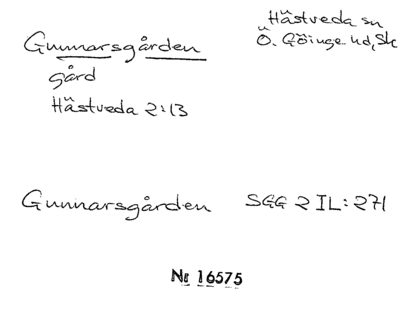 Hästveda sn
Gunnarsgården Ö. Göinge hd, Sk
gård
Hästveda 2:13
Gunnarsgården SGG 2 IL: 271
Nr 16575